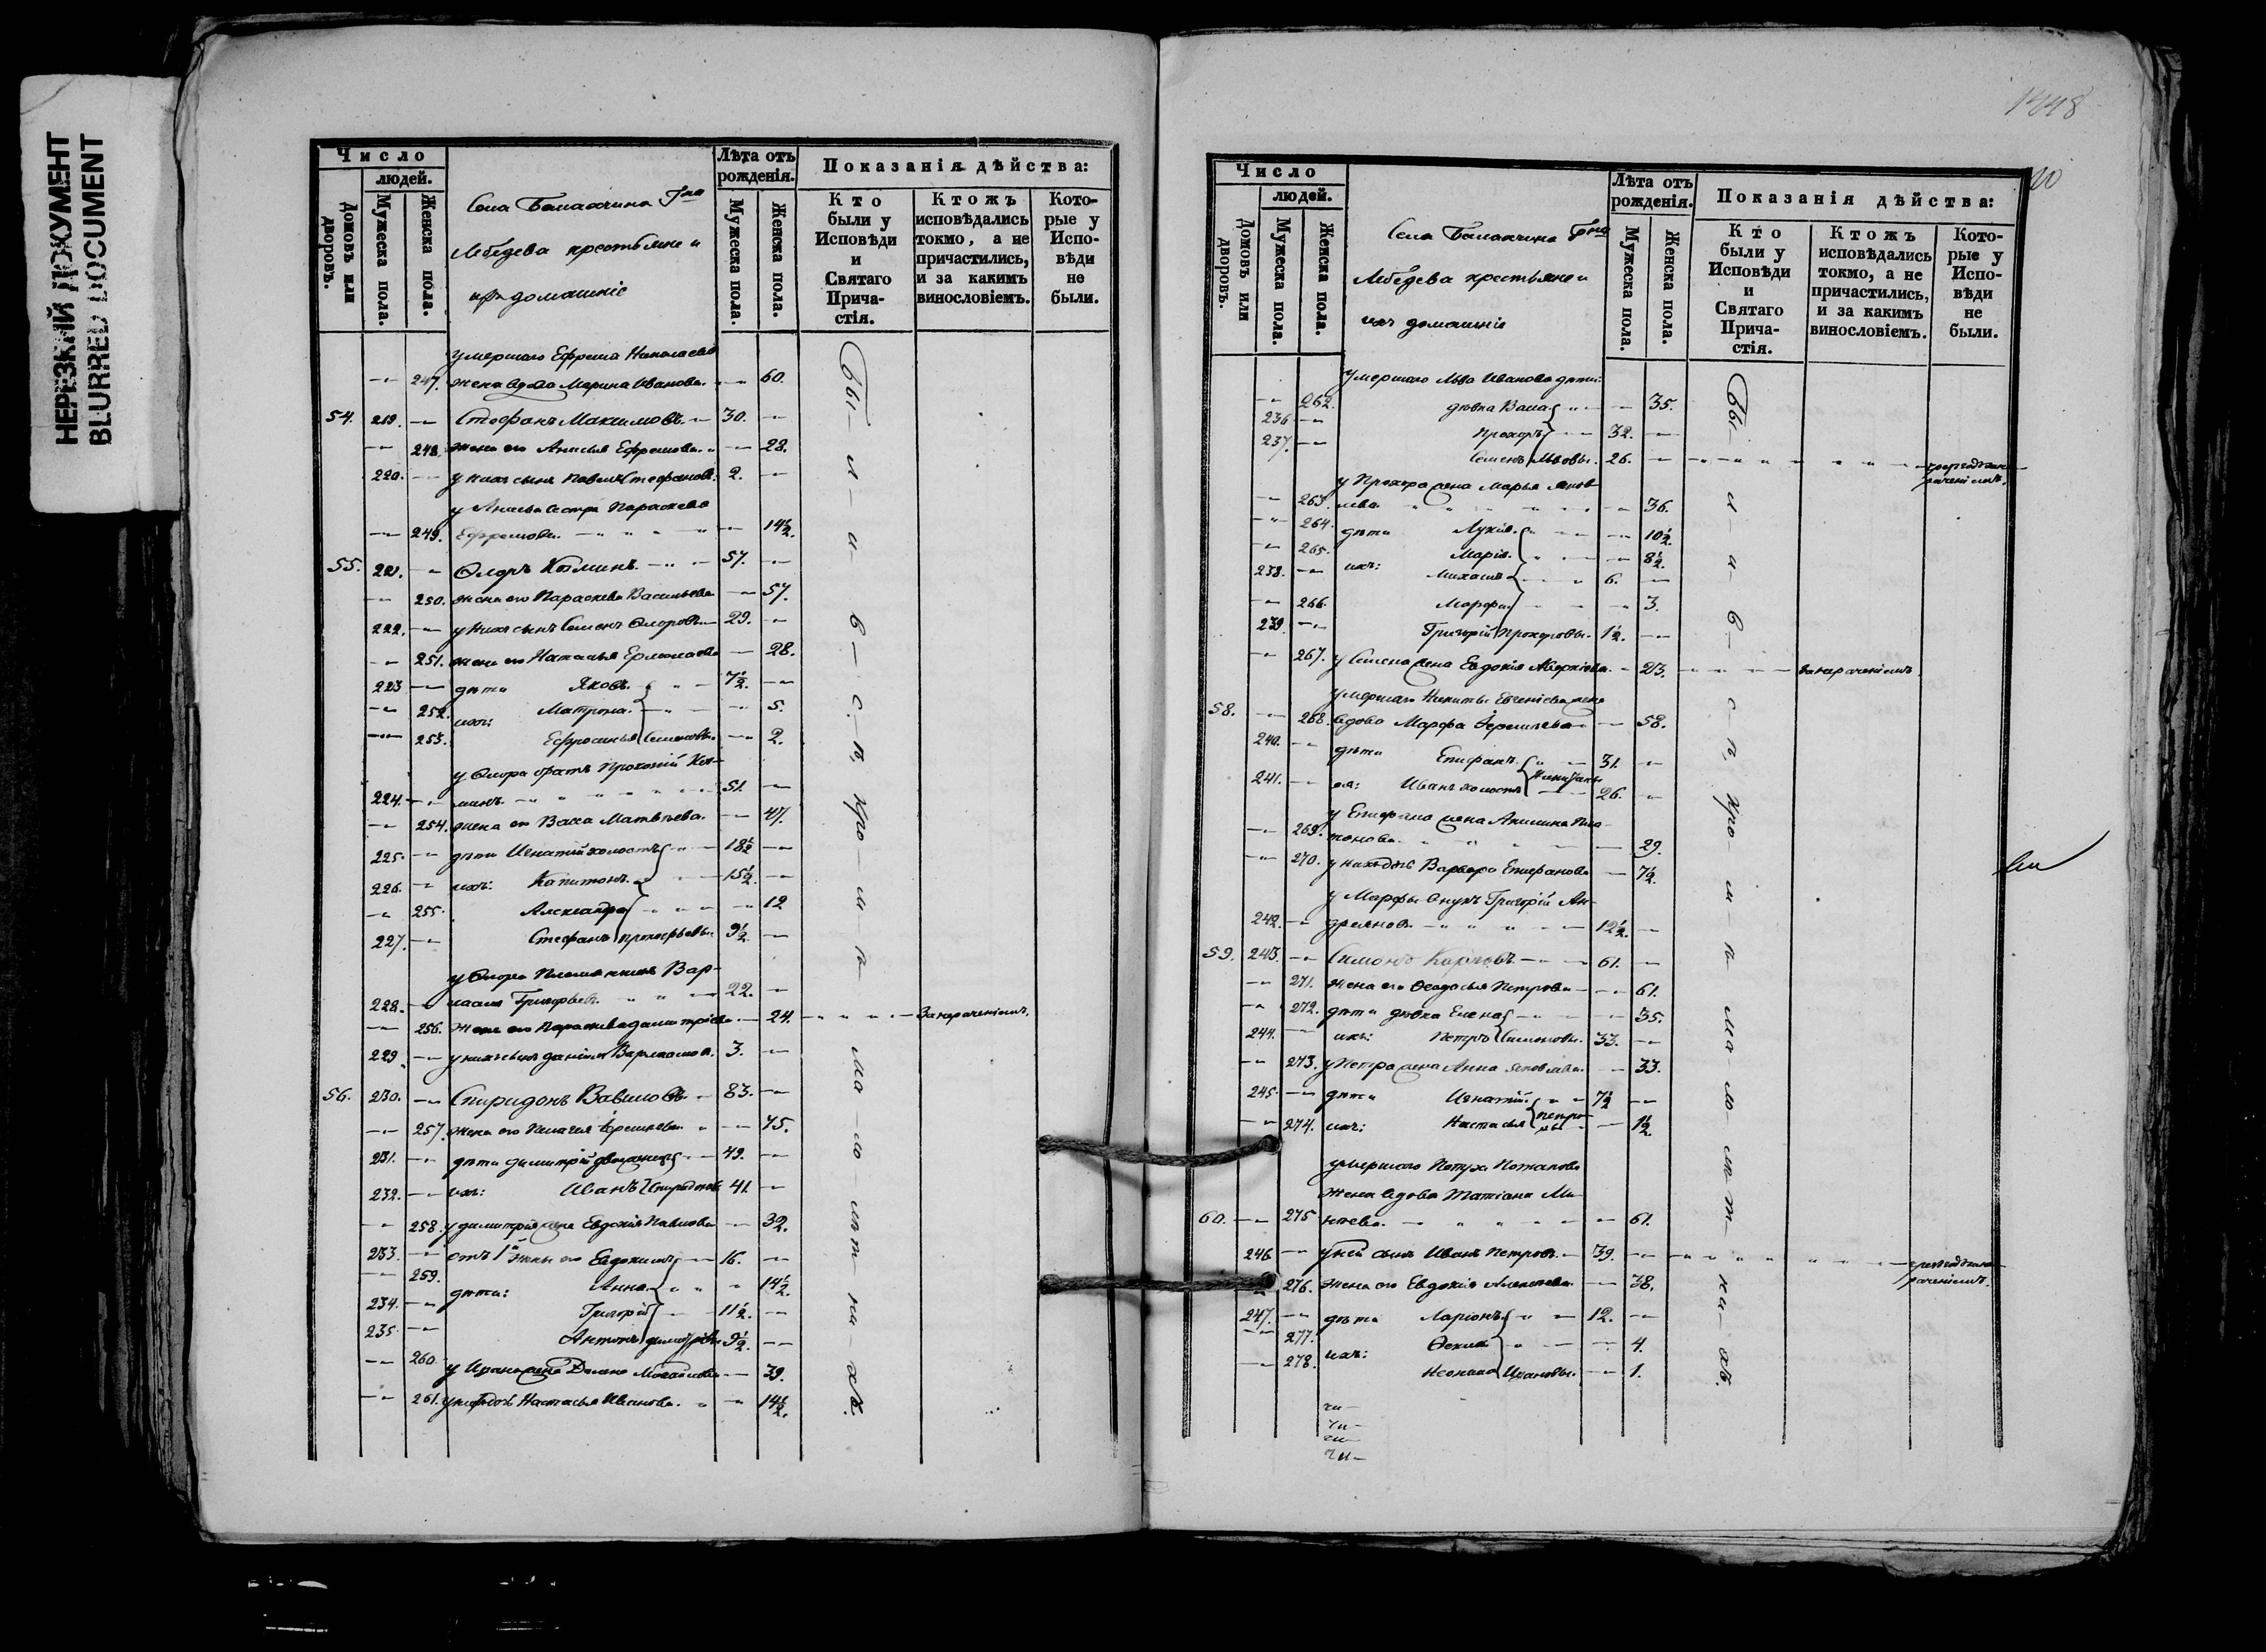 НЕРЕЗКИЙ ДОКУМЕНТ
BLURRED DOCUMENT
Число
людей.
Домовъ или дворовъ.
Мужеска пола.
Женска пола.
Села Г-на
Лебедева крестьяне и
ихъ домашніе
Лѣта отъ рожденія.
Мужеска пола.
Женска пола.
Показанія дѣйства:
Кто были у Исповѣди и Святаго Прича-стія.
Ктожъ исповѣдались токмо, а не причастились, и за какимъ винословіемъ.
Кото-рые у Испо-вѣди не были.
умершаго Ефрема Николаева
247. жена вдова Марина Иванова. 60.
54. 219. Стефанъ Максимовъ. 30.
248. жена его Анисья Ефремова. 28.
220. у нихъ сынъ Павелъ Стефановъ. 2.
у Анисьи сестра Параскева
249. Ефремова. 14½.
55. 221. Флоръ Козминъ. 57.
250. жена его Параскева Васильева 57.
222. у нихъ сынъ Семенъ Флоровъ 29.
251. жена его Наталья Ермолаева 28.
223 дѣти Яковъ. 7½.
252. ихъ: Матрона. 5.
253. Ефросинья Семеновы. 2.
у Флора братъ Прокофій Коз-
224. минъ. 51.
254. жена его Васса Матвѣева. 47.
225. дѣти Игнатій холостъ 18½
226. ихъ: Капитонъ. 15½.
255. Александра 12
227. Стефанъ Прокофьевы 9½.
у Флора племянникъ Вар-
228. лаамъ Григорьевъ. 22.
256. жена его Параскева Димитріева. 24. За нераченіемъ.
229 у нихъ сынъ Даніилъ Варлаамовъ. 3.
56. 230. Спиридонъ Вавиловъ. 83.
257. жена его Пелагея Еремѣева 75.
231. дѣти Димитрій двоеженецъ 49.
232. ихъ: Иванъ Спиридоновы 41.
258. у Димитрія жена Евдокія Павлова 32.
233. отъ 1й жены его Евдокимъ 16.
259. дѣти: Анна. 14½.
234. Григорій 11½.
235. Антонъ Димитріевы 9½.
260. у Ивана жена Михайлова 39.
261. у нихъ дочь Настасья Иванова. 14½.
Бы-
л-
и-
в-
с.-
п,
Хро-
ш-
п-
ма-
ю
ст-
ни-
хъ.
1448
20
Число
людей.
Домовъ или дворовъ.
Мужеска пола.
Женска пола.
Села Г-на
Лебедева крестьяне и
ихъ домашніе
Лѣта отъ рожденія.
Мужеска пола.
Женска пола.
Показанія дѣйства:
Кто были у Исповѣди и Святаго Прича-стія.
Ктожъ исповѣдались токмо, а не причастились, и за какимъ винословіемъ.
Кото-рые у Испо-вѣди не были.
умершаго Льва Иванова дѣти:
262. дѣвка Васса 35.
236 Прохоръ 32.
237. Семенъ Львовы. 26.
у Прохора жена Марья Яков-
263. лева. 36.
264. дѣти Лукія. 10½.
265. Марія. 8½.
238. ихъ: Михаилъ 6.
266. Марфа. 3.
239 Григорій Прохоровы. 1½.
267. у Семена жена Евдокія Аверкіева. 23. За нераченіемъ.
умершаго Никиты Евгеніева жена
58. 268. вдова Марфа Еремѣева 58.
240. дѣти Епифанъ. 31.
241. ея: Иванъ холостъ Никитины 26.
у Епифана жена Акилина Пла-
269. тонова. 29.
270. у нихъ дочь Варвара Епифанова 7½.
у Марфы внукъ Григорій Ан-
242. дреяновъ 12½.
59. 243. Симонъ Карповъ 61.
271. жена его Феодосья Петрова 61.
272. дѣти дѣвка Елена 35.
244. ихъ: Петръ Симоновы. 33.
273. у Петра жена Анна Яковлева. 33.
245. дѣти Игнатій. 7½
274. ихъ: Настасья Петро-вы 1½.
умершаго Петра Потапова
жена вдова Татіана Ми-
60. 275 хѣева. 61.
246 у ней сынъ Иванъ Петровъ. 39.
276. жена его Евдокія Алексѣева. 38.
247. дѣти Ларіонъ 12.
277. ихъ: Фекла 4.
278. Неонила Ивановы. 1.
Бы-
л-
и-
в-
с-
п,
Хро-
ш-
п-
ма-
ю
ст-
ни-
хъ.